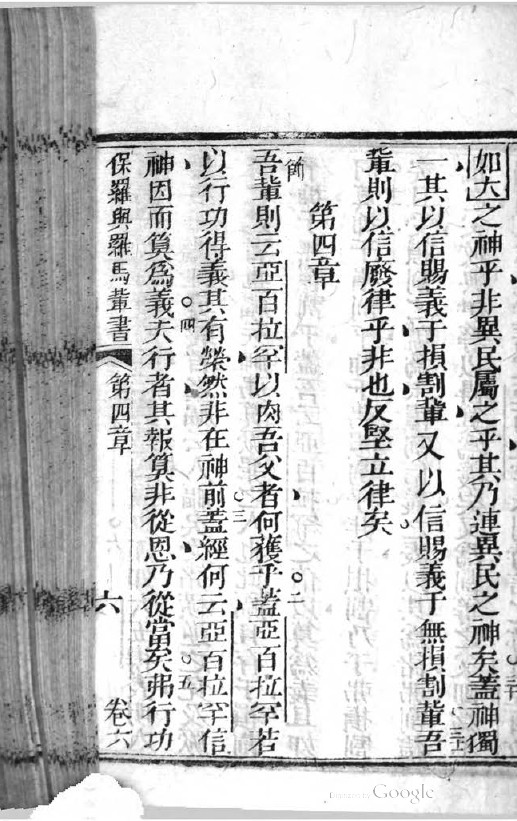 如大之神乎非異民屬之乎其乃連異民之神矣蓋神獨
三十
一其以信賜義于損割輩又以信賜義于無損割輩吾
三一
輩則以信廢律乎非也反堅立律矣
第四章
一節
吾輩則云亞百拉罕以肉吾父者何獲乎蓋亞百拉罕若
二
以行功得義其有榮然非在神前蓋經何云亞百拉罕信
三
神因而算為義夫行者其報算非從恩乃從當矣弗行功
四
五
保羅與羅馬輩書 第四章 六 卷六
Digitized by Google